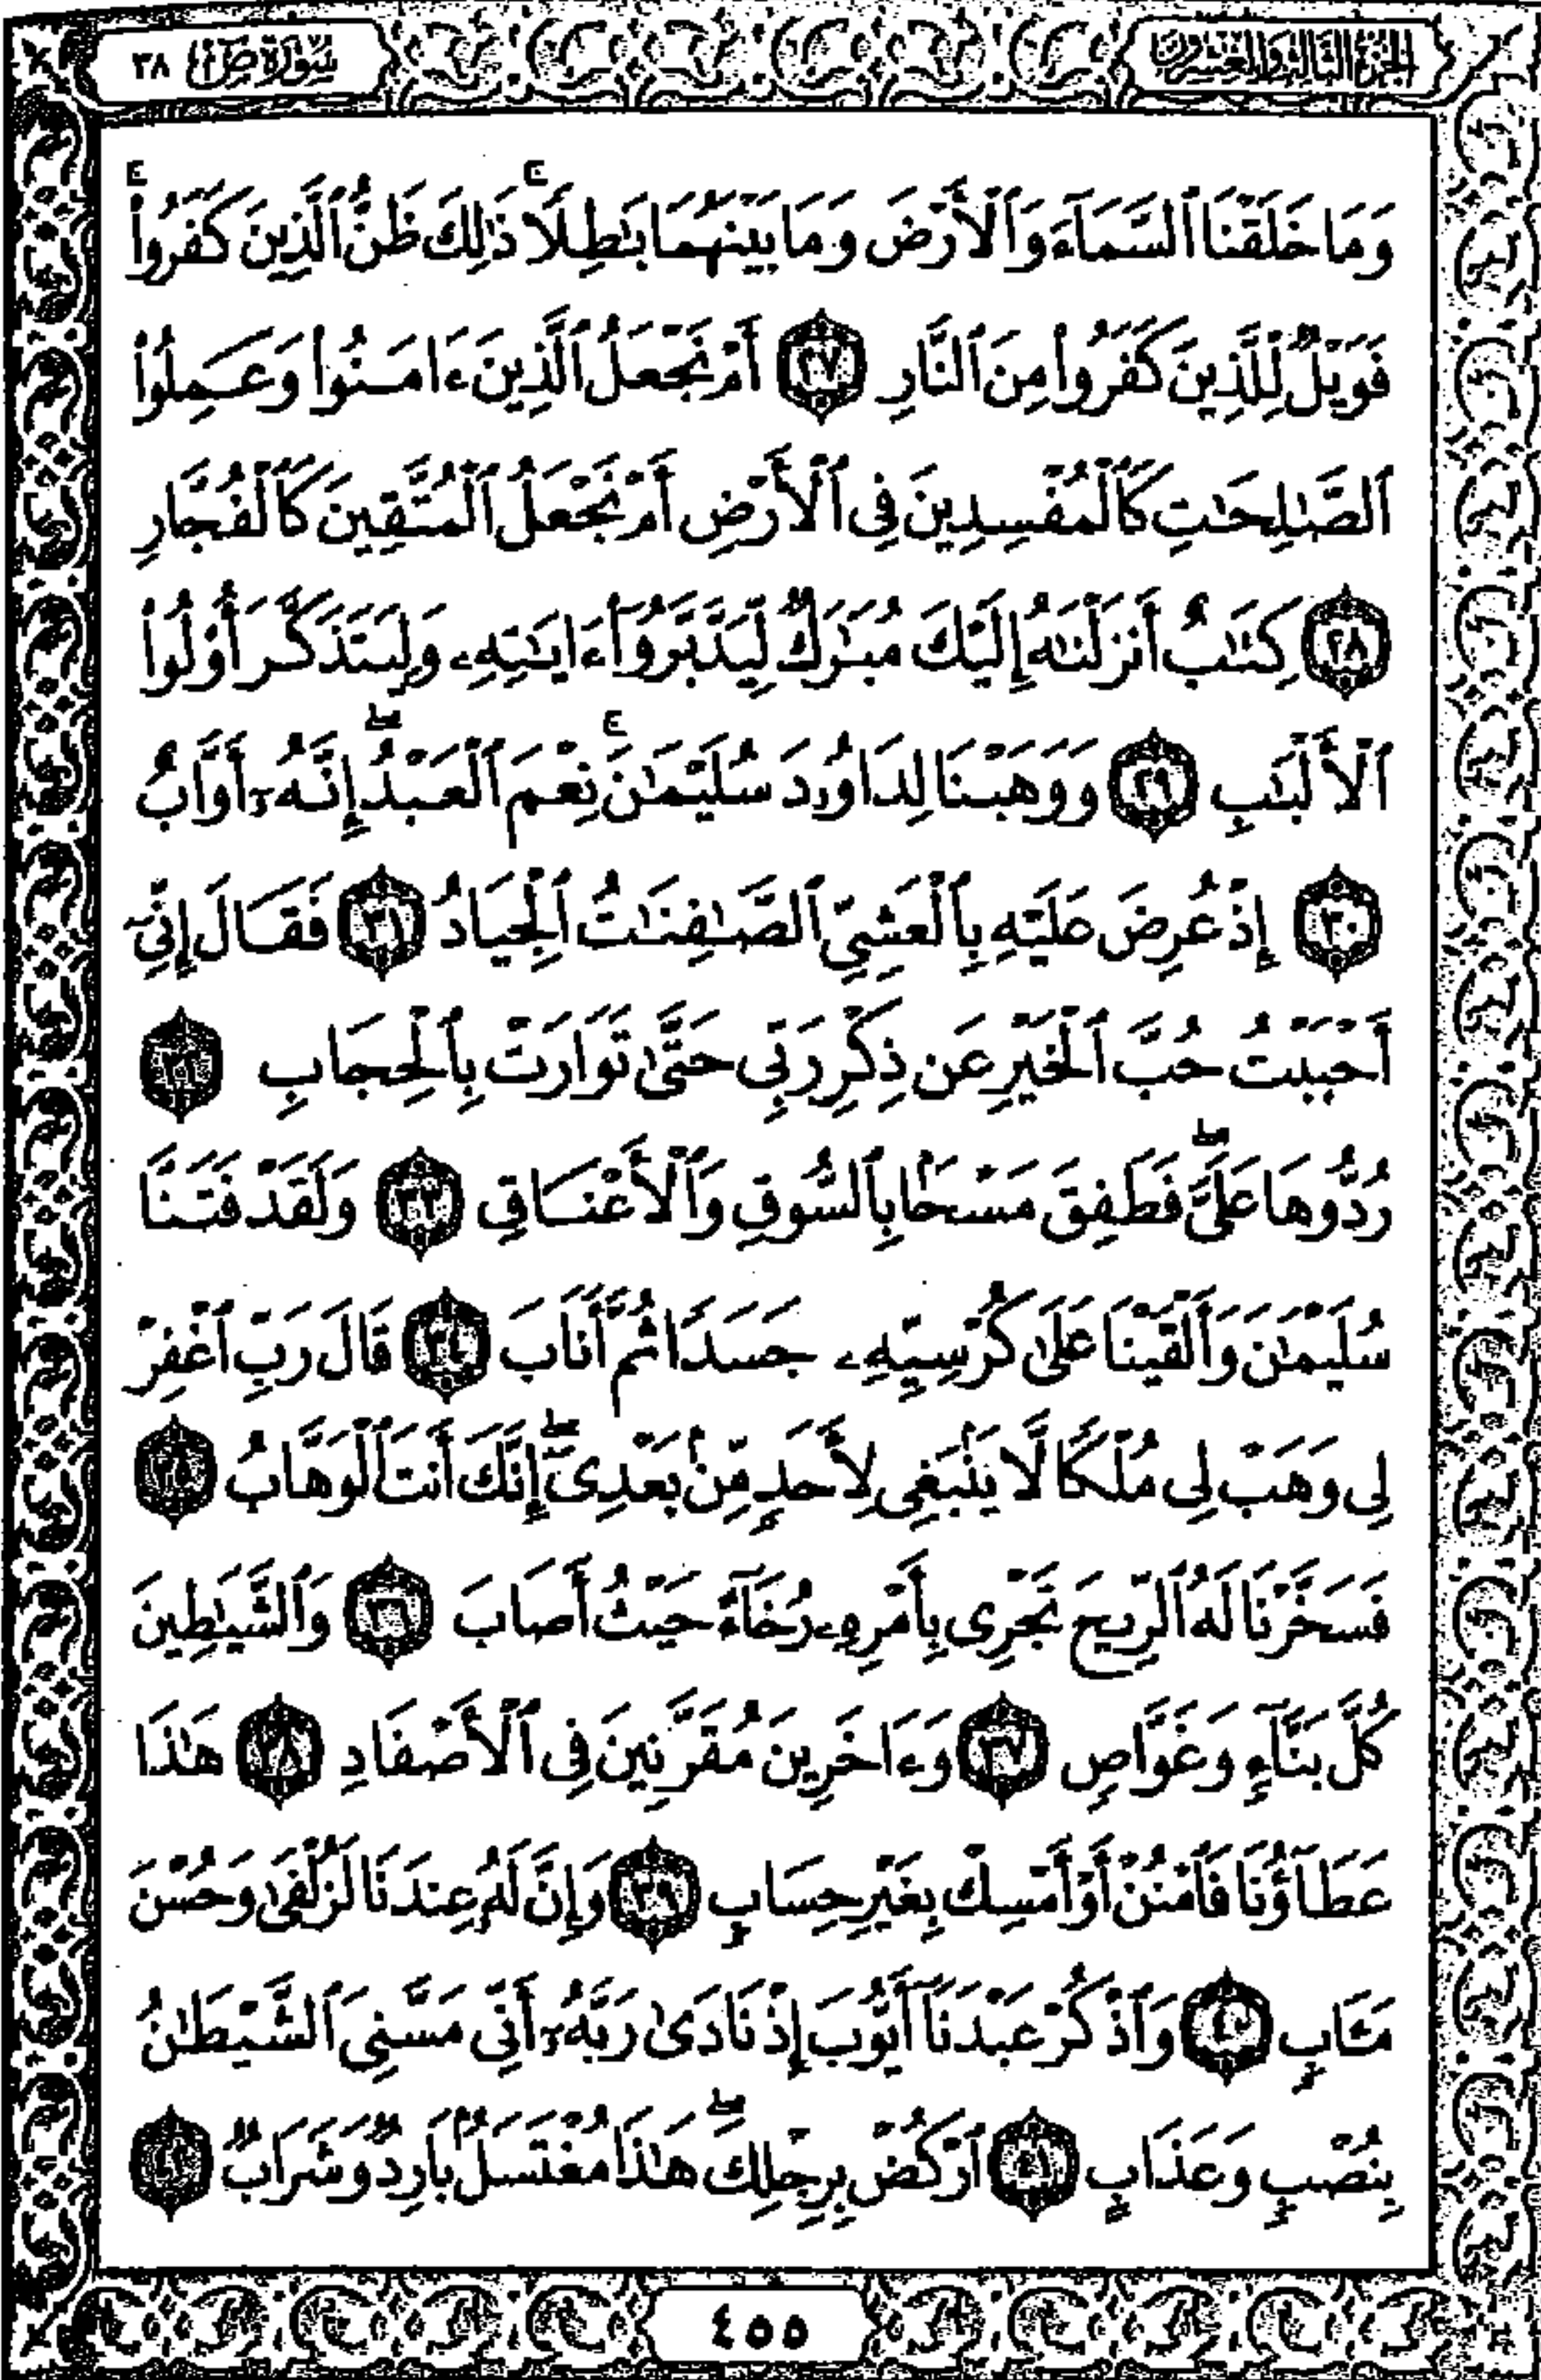 الجزء الثالث والعشرون
سورة ص ٣٨
وَمَا خَلَقْنَا ٱلسَّمَآءَ وَٱلْأَرْضَ وَمَا بَيْنَهُمَا بَٰطِلًا ۚ ذَٰلِكَ ظَنُّ ٱلَّذِينَ كَفَرُوا۟ ۚ
فَوَيْلٌ لِّلَّذِينَ كَفَرُوا۟ مِنَ ٱلنَّارِ ٢٧ أَمْ نَجْعَلُ ٱلَّذِينَ ءَامَنُوا۟ وَعَمِلُوا۟
ٱلصَّٰلِحَٰتِ كَٱلْمُفْسِدِينَ فِى ٱلْأَرْضِ أَمْ نَجْعَلُ ٱلْمُتَّقِينَ كَٱلْفُجَّارِ
٢٨ كِتَٰبٌ أَنزَلْنَٰهُ إِلَيْكَ مُبَٰرَكٌ لِّيَدَّبَّرُوٓا۟ ءَايَٰتِهِۦ وَلِيَتَذَكَّرَ أُو۟لُوا۟
ٱلْأَلْبَٰبِ ٢٩ وَوَهَبْنَا لِدَاوُۥدَ سُلَيْمَٰنَ ۚ نِعْمَ ٱلْعَبْدُ ۖ إِنَّهُۥٓ أَوَّابٌ
٣٠ إِذْ عُرِضَ عَلَيْهِ بِٱلْعَشِىِّ ٱلصَّٰفِنَٰتُ ٱلْجِيَادُ ٣١ فَقَالَ إِنِّىٓ
أَحْبَبْتُ حُبَّ ٱلْخَيْرِ عَن ذِكْرِ رَبِّى حَتَّىٰ تَوَارَتْ بِٱلْحِجَابِ ٣٢
رُدُّوهَا عَلَىَّ ۖ فَطَفِقَ مَسْحًۢا بِٱلسُّوقِ وَٱلْأَعْنَاقِ ٣٣ وَلَقَدْ فَتَنَّا
سُلَيْمَٰنَ وَأَلْقَيْنَا عَلَىٰ كُرْسِيِّهِۦ جَسَدًا ثُمَّ أَنَابَ ٣٤ قَالَ رَبِّ ٱغْفِرْ
لِى وَهَبْ لِى مُلْكًا لَّا يَنۢبَغِى لِأَحَدٍ مِّنۢ بَعْدِىٓ ۖ إِنَّكَ أَنتَ ٱلْوَهَّابُ ٣٥
فَسَخَّرْنَا لَهُ ٱلرِّيحَ تَجْرِى بِأَمْرِهِۦ رُخَآءً حَيْثُ أَصَابَ ٣٦ وَٱلشَّيَٰطِينَ
كُلَّ بَنَّآءٍ وَغَوَّاصٍ ٣٧ وَءَاخَرِينَ مُقَرَّنِينَ فِى ٱلْأَصْفَادِ ٣٨ هَٰذَا
عَطَآؤُنَا فَٱمْنُنْ أَوْ أَمْسِكْ بِغَيْرِ حِسَابٍ ٣٩ وَإِنَّ لَهُۥ عِندَنَا لَزُلْفَىٰ وَحُسْنَ
مَـَٔابٍ ٤٠ وَٱذْكُرْ عَبْدَنَآ أَيُّوبَ إِذْ نَادَىٰ رَبَّهُۥٓ أَنِّى مَسَّنِىَ ٱلشَّيْطَٰنُ
بِنُصْبٍ وَعَذَابٍ ٤١ ٱرْكُضْ بِرِجْلِكَ ۖ هَٰذَا مُغْتَسَلٌۢ بَارِدٌ وَشَرَابٌ ٤٢
٤٥٥